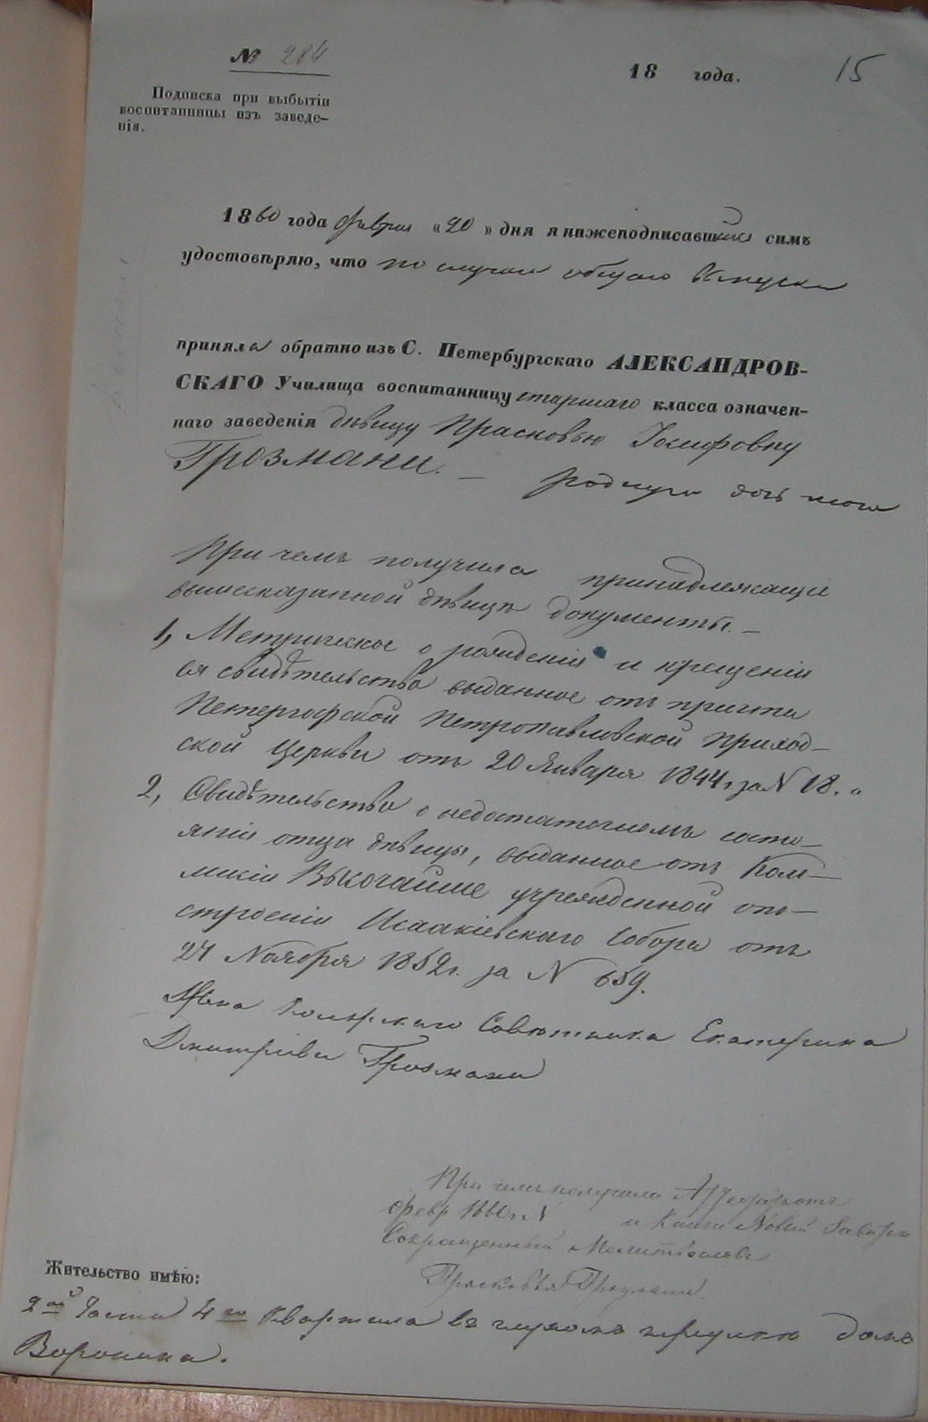 № 284
18 года.
15
Подписка при выбытіи
воспитанницы изъ заведе-
нія.
1860 года февраля «20» дня я нижеподписавшаяся симъ
удостовѣряю, что по случаю общаго выпуска
приняла обратно изъ С. Петербургскаго АЛЕКСАНДРОВ-
СКАГО Училища воспитанницу старшаго класса означен-
наго заведенія дѣвицу Прасковью Іосифовну
Грозмани. — родную дочь мою
При чемъ получила принадлежащіе
вышесказанной дѣвицѣ документы. —
1, Метрическое о рожденіи и крещеніи
ея свидѣтельство выданное отъ причта
Петергофской Петропавловской приход-
ской церкви отъ 20 Января 1844 г. за N 18. „
2, Свидѣтельство о недостаточномъ состо-
яніи отца дѣвицы, выданное отъ Ком-
мисіи Высочайше учрежденной о по-
строеніи Исаакіевскаго Собора отъ
24 Ноября 1852 г. за N 659.
Жена Совѣтника Екатерина
Дмитріева Грозмани
При чемъ получила Аттестатъ
февр 1860 г. N и книги Новый Завѣтъ
Сокращенный Молитвословъ
Прасковья Грозмани.
Жительство имѣю:
2ой Части 4го Квартала въ глухомъ переулкѣ домъ
Воронина.